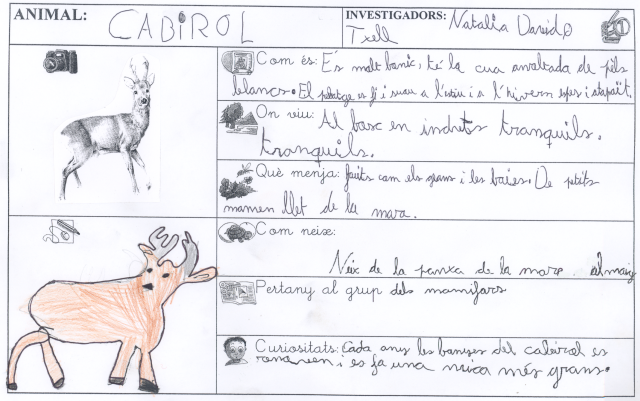 ANIMAL: CABIROL
INVESTIGADORS: Natalia David
Txell
Com és: És molt bonic, té la cua envoltada de pèls
blancs. El pelatge és fi i suau a l'estiu i a l'hivern espes i atapaït.
On viu: Al bosc en indrets tranquils.
tranquils.
Què menja: fruits com els grans i les baies. De petits
mamen llet de la mara.
Com neix:
Neix de la panxa de la mare. al maig
Pertany al grup dels mamifars
Curiositats: Cada any les banyes del cabirol es
i es fa una mica més grans.